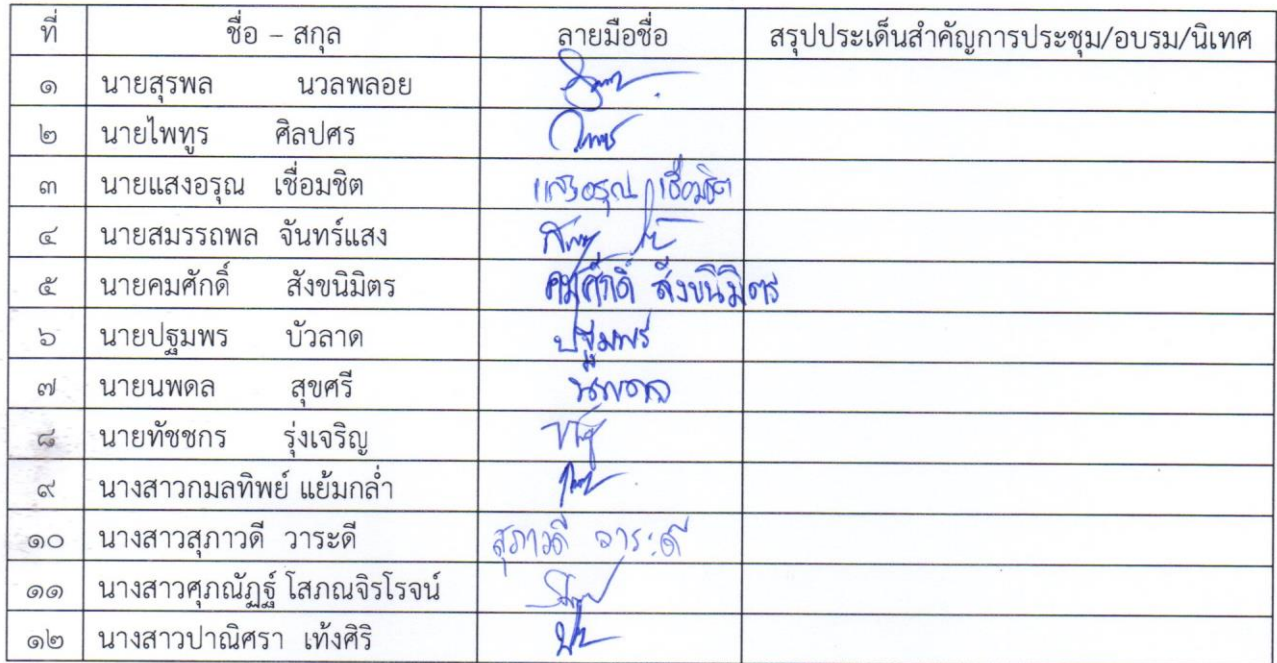 ที่ ชื่อ – สกุล ลายมือชื่อ สรุปประเด็นสำคัญการประชุม/อบรม/นิเทศ
๑ นายสุรพล นวลพลอย
๒ นายไพทูร ศิลปศร
๓ นายแสงอรุณ เชื่อมชิต แสงอรุณ เชื่อมชิต
๔ นายสมรรถพล จันทร์แสง
๕ นายคมศักดิ์ สังขนิมิตร คมศักดิ์ สังขนิมิตร
๖ นายปฐมพร บัวลาด ปฐมพร
๗ นายนพดล สุขศรี นพดล
๘ นายทัชชกร รุ่งเจริญ
๙ นางสาวกมลทิพย์ แย้มกล่ำ
๑๐ นางสาวสุภาวดี วาระดี สุภาวดี วาระดี
๑๑ นางสาวศุภณัฏฐ์ โสภณจิรโรจน์
๑๒ นางสาวปาณิศรา เท้งศิริ